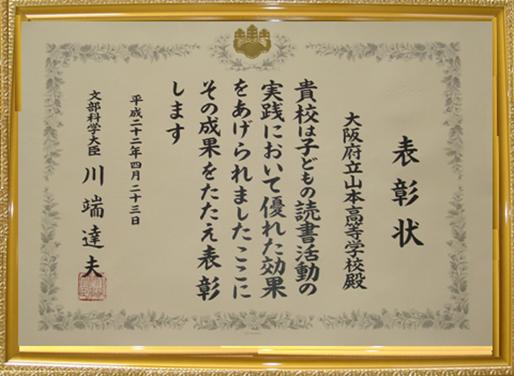 表彰状
大阪府立山本高等学校殿
貴校は子どもの読書活動の
実践において優れた効果
をあげられましたここに
その成果をたたえ表彰
します
平成二十二年四月二十三日
文部科学大臣 川端達夫